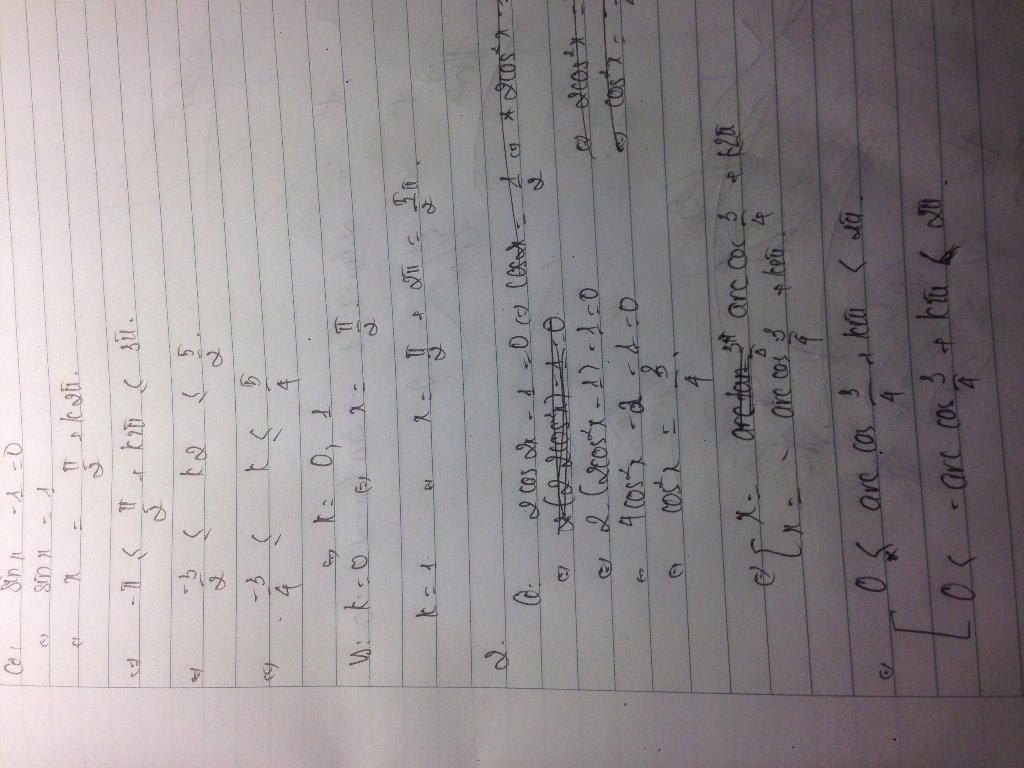 Có: sin x - 1 = 0
⇔ sin x = 1
⇔ x = π/2 + k2π.
⇔ -π ≤ π/2 + k2π ≤ 3π.
⇔ -3/2 ≤ k2 ≤ 5/2.
⇔ -3/4 ≤ k ≤ 5/4
⇒ k = 0, 1
Vì k = 0 ⇒ x = π/2
k = 1 ⇒ x = π/2 + 2π = π.
2.
Có: 2cos2x - 1 = 0 ⇔ cos2x = 1/2 ⇔ 2cos²x =
⇔ 2(2-2(cos²x)-1 = 0
⇔ 2cos²x =
⇔ 2(2cos²x - 1) - 1 = 0
⇔ cos²x =
⇔ 4cos²x - 2 - 1 = 0
⇔ cos²x = 3/4.
⇔ [ x = arc cos 3/4 + k2π
x = - arc cos 3/4 + kπ
⇔ [ 0 < arc cos 3/4 + kπ < 2π.
0 < -arc cos 3/4 + kπ < 2π.